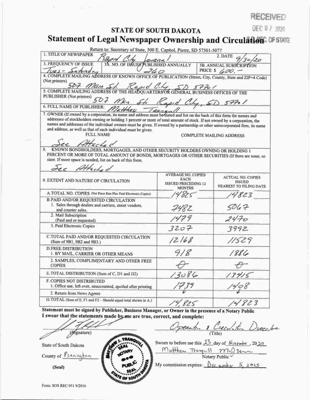 RECEIVED
DEC 07 2020
STATE OF SOUTH DAKOTA
Statement of Legal Newspaper Ownership and Circulation
Return to: Secretary of State, 500 E. Capitol, Pierre, SD 57501-5077
1. TITLE OF NEWSPAPER
Rapid City Journal
2. DATE
9/30/20
3. FREQUENCY OF ISSUE
Tues-Saturday
3A. NO. OF ISSUES PUBLISHED ANNUALLY
260
3B. ANNUAL SUBSCRIPTION
PRICE $ 600.—
4. COMPLETE MAILING ADDRESS OF KNOWN OFFICE OF PUBLICATION (Street, City, County, State and ZIP+4 Code)
(Not printers)
507 Main St Rapid City, SD 57701
5. COMPLETE MAILING ADDRESS OF THE HEADQUARTERS OR GENERAL BUSINESS OFFICES OF THE
PUBLISHER (Not printers)
507 Main St. Rapid City, SD 57701
6. FULL NAME OF PUBLISHER:
Matthew Tranquill
7. OWNER (If owned by a corporation, its name and address must be stated and on the back of this form the names and
addresses of stockholders owning or holding 1 percent or more of total amount of stock. If not owned by a corporation, the
names and addresses of the individual owners must be given. If owned by a partnership or other unincorporated firm, its name
and address, as well as that of each individual must be given.
FULL NAME
COMPLETE MAILING ADDRESS
See Attached
8. KNOWN BONDHOLDERS, MORTGAGES, AND OTHER SECURITY HOLDERS OWNING OR HOLDING 1
PERCENT OR MORE OF TOTAL AMOUNT OF BONDS, MORTGAGES OR OTHER SECURITIES (If there are none, so
state. If more space is needed, list on back of this form.
See Attached
9. EXTENT AND NATURE OF CIRCULATION
AVERAGE NO. COPIES
EACH
ISSUED PRECEDING 12
MONTHS
ACTUAL NO. COPIES
ISSUED
NEAREST TO FILING DATE
A. TOTAL NO. COPIES (Net Press Run Plus Paid Electronic Copies)
14825
14823
B. PAID AND/OR REQUESTED CIRCULATION
1. Sales through dealers and carriers, street vendors,
and counter sales.
7482
5067
2. Mail Subscription
(Paid and or requested)
1479
2470
3. Paid Electronic Copies
3207
3992
C. TOTAL PAID AND/OR REQUESTED CIRCULATION
(Sum of 9B1, 9B2 and 9B3.)
12168
11529
D. FREE DISTRIBUTION
1. BY MAIL, CARRIER OR OTHER MEANS
918
1886
2. SAMPLES, COMPLIMENTARY AND OTHER FREE
COPIES
E. TOTAL DISTRIBUTION (Sum of C, D1 and D2)
13086
13415
F. COPIES NOT DISTRIBUTED
1. Office use, left over, unaccounted, spoiled after printing
1739
1408
2. Return from News Agents
G. TOTAL (Sum of E, F1 and F2 - Should equal total shown in A.)
14,825
14823
Statement must be signed by Publisher, Business Manager, or Owner in the presence of a Notary Public
I swear that the statements made by me are true, correct, and complete:
(Signature)
Operations & Circulation Director
(Title)
State of South Dakota
County of Pennington
(Seal)
NOTARY
PUBLIC
SOUTH DAKOTA
Sworn to before me this 23 day of November, 2020
Notary Public
My commission expires: December 5, 2025
Form: SOS REC 051 9/2016